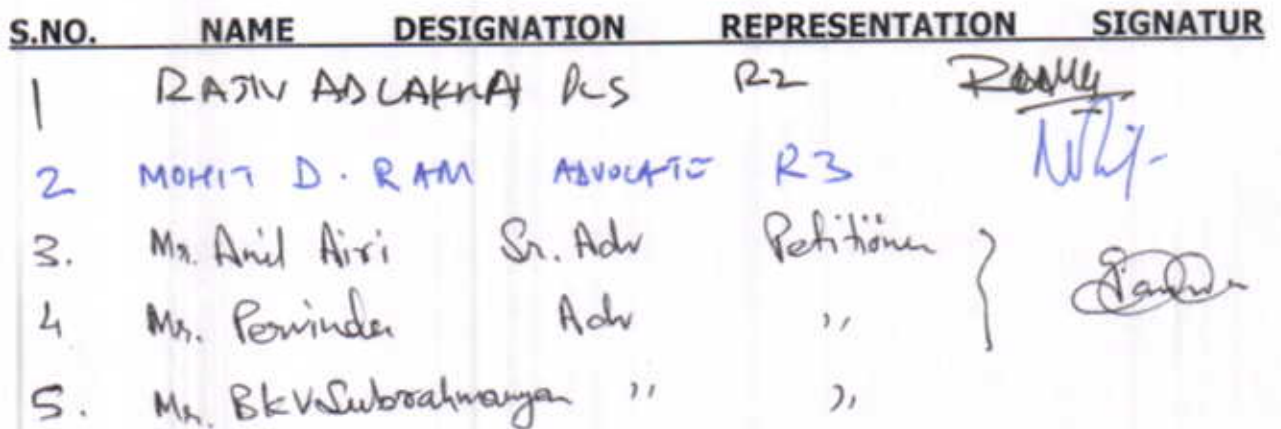 S.NO. NAME DESIGNATION REPRESENTATION SIGNATUR
1 RAJIV ADLAKHA PCS R2
2 MOHIT D. RAM ADVOCATE R3
3. Mr. Anil Airi Sr. Adv Petitioner
4 Mr. Perminder Adv ,,
5. Mr. BKV Subrahmanyan ,, ,,